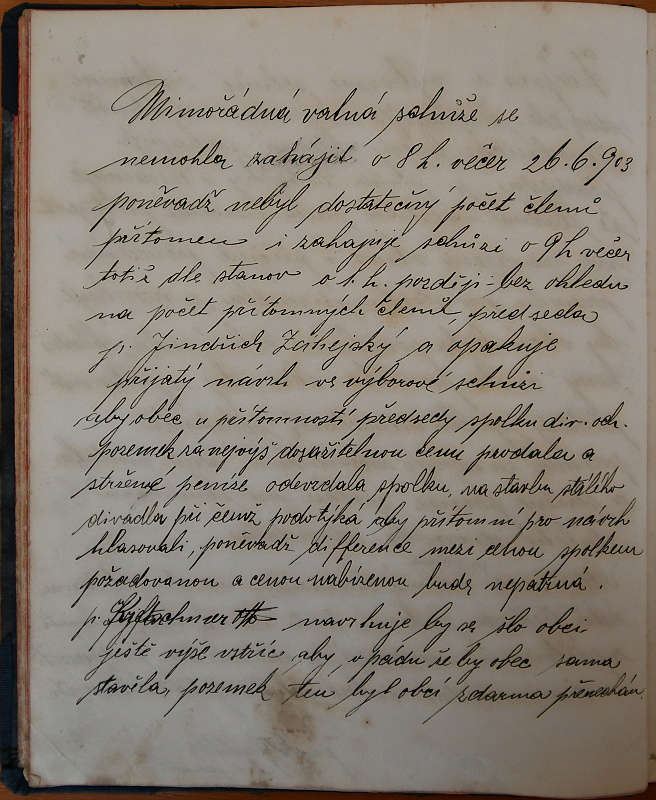 Mimořádná valná schůze se
nemohla zahájit o 8 h. večer 26.6.903
poněvadž nebyl dostatečný počet členů
přítomen i zahajuje schůzi o 9 h večer
totiž dle stanov o 1. h. později bez ohledu
na počet přítomných členů, předseda
p. Jindřich Zahejský a opakuje
přijatý návrh ve výborové schůzi
aby obec u přítomností předsedy spolku div. och.
pozemek za nejvýš dosažitelnou cenu prodala a
stržené peníze odevzdala spolku, na stavbu stálého
divadla při čemž podotýká aby přítomní pro návrh
hlasovali, poněvadž difference mezi cenou spolkem
požadovanou a cenou nabízenou bude nepatrná.
p. navrhuje by se šlo obci
ještě výše vstříc aby, v pádu že by obec sama
stavěla, pozemek ten byl obcí zdarma přenechán.